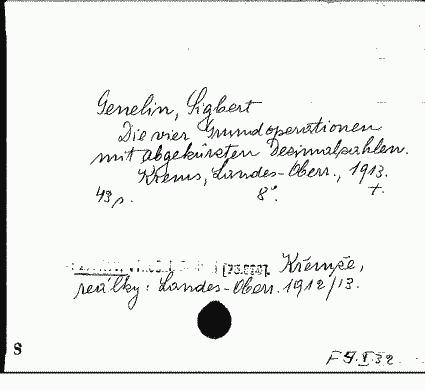 Genelin, Sigbert
Die vier Grundoperationen
mit abgekürzten Dezimalzahlen.
Krems, Landes-Oberr., 1913.
43 p. 8°. +.
Křemže,
reálky: Landes-Oberr. 1912/13.
8